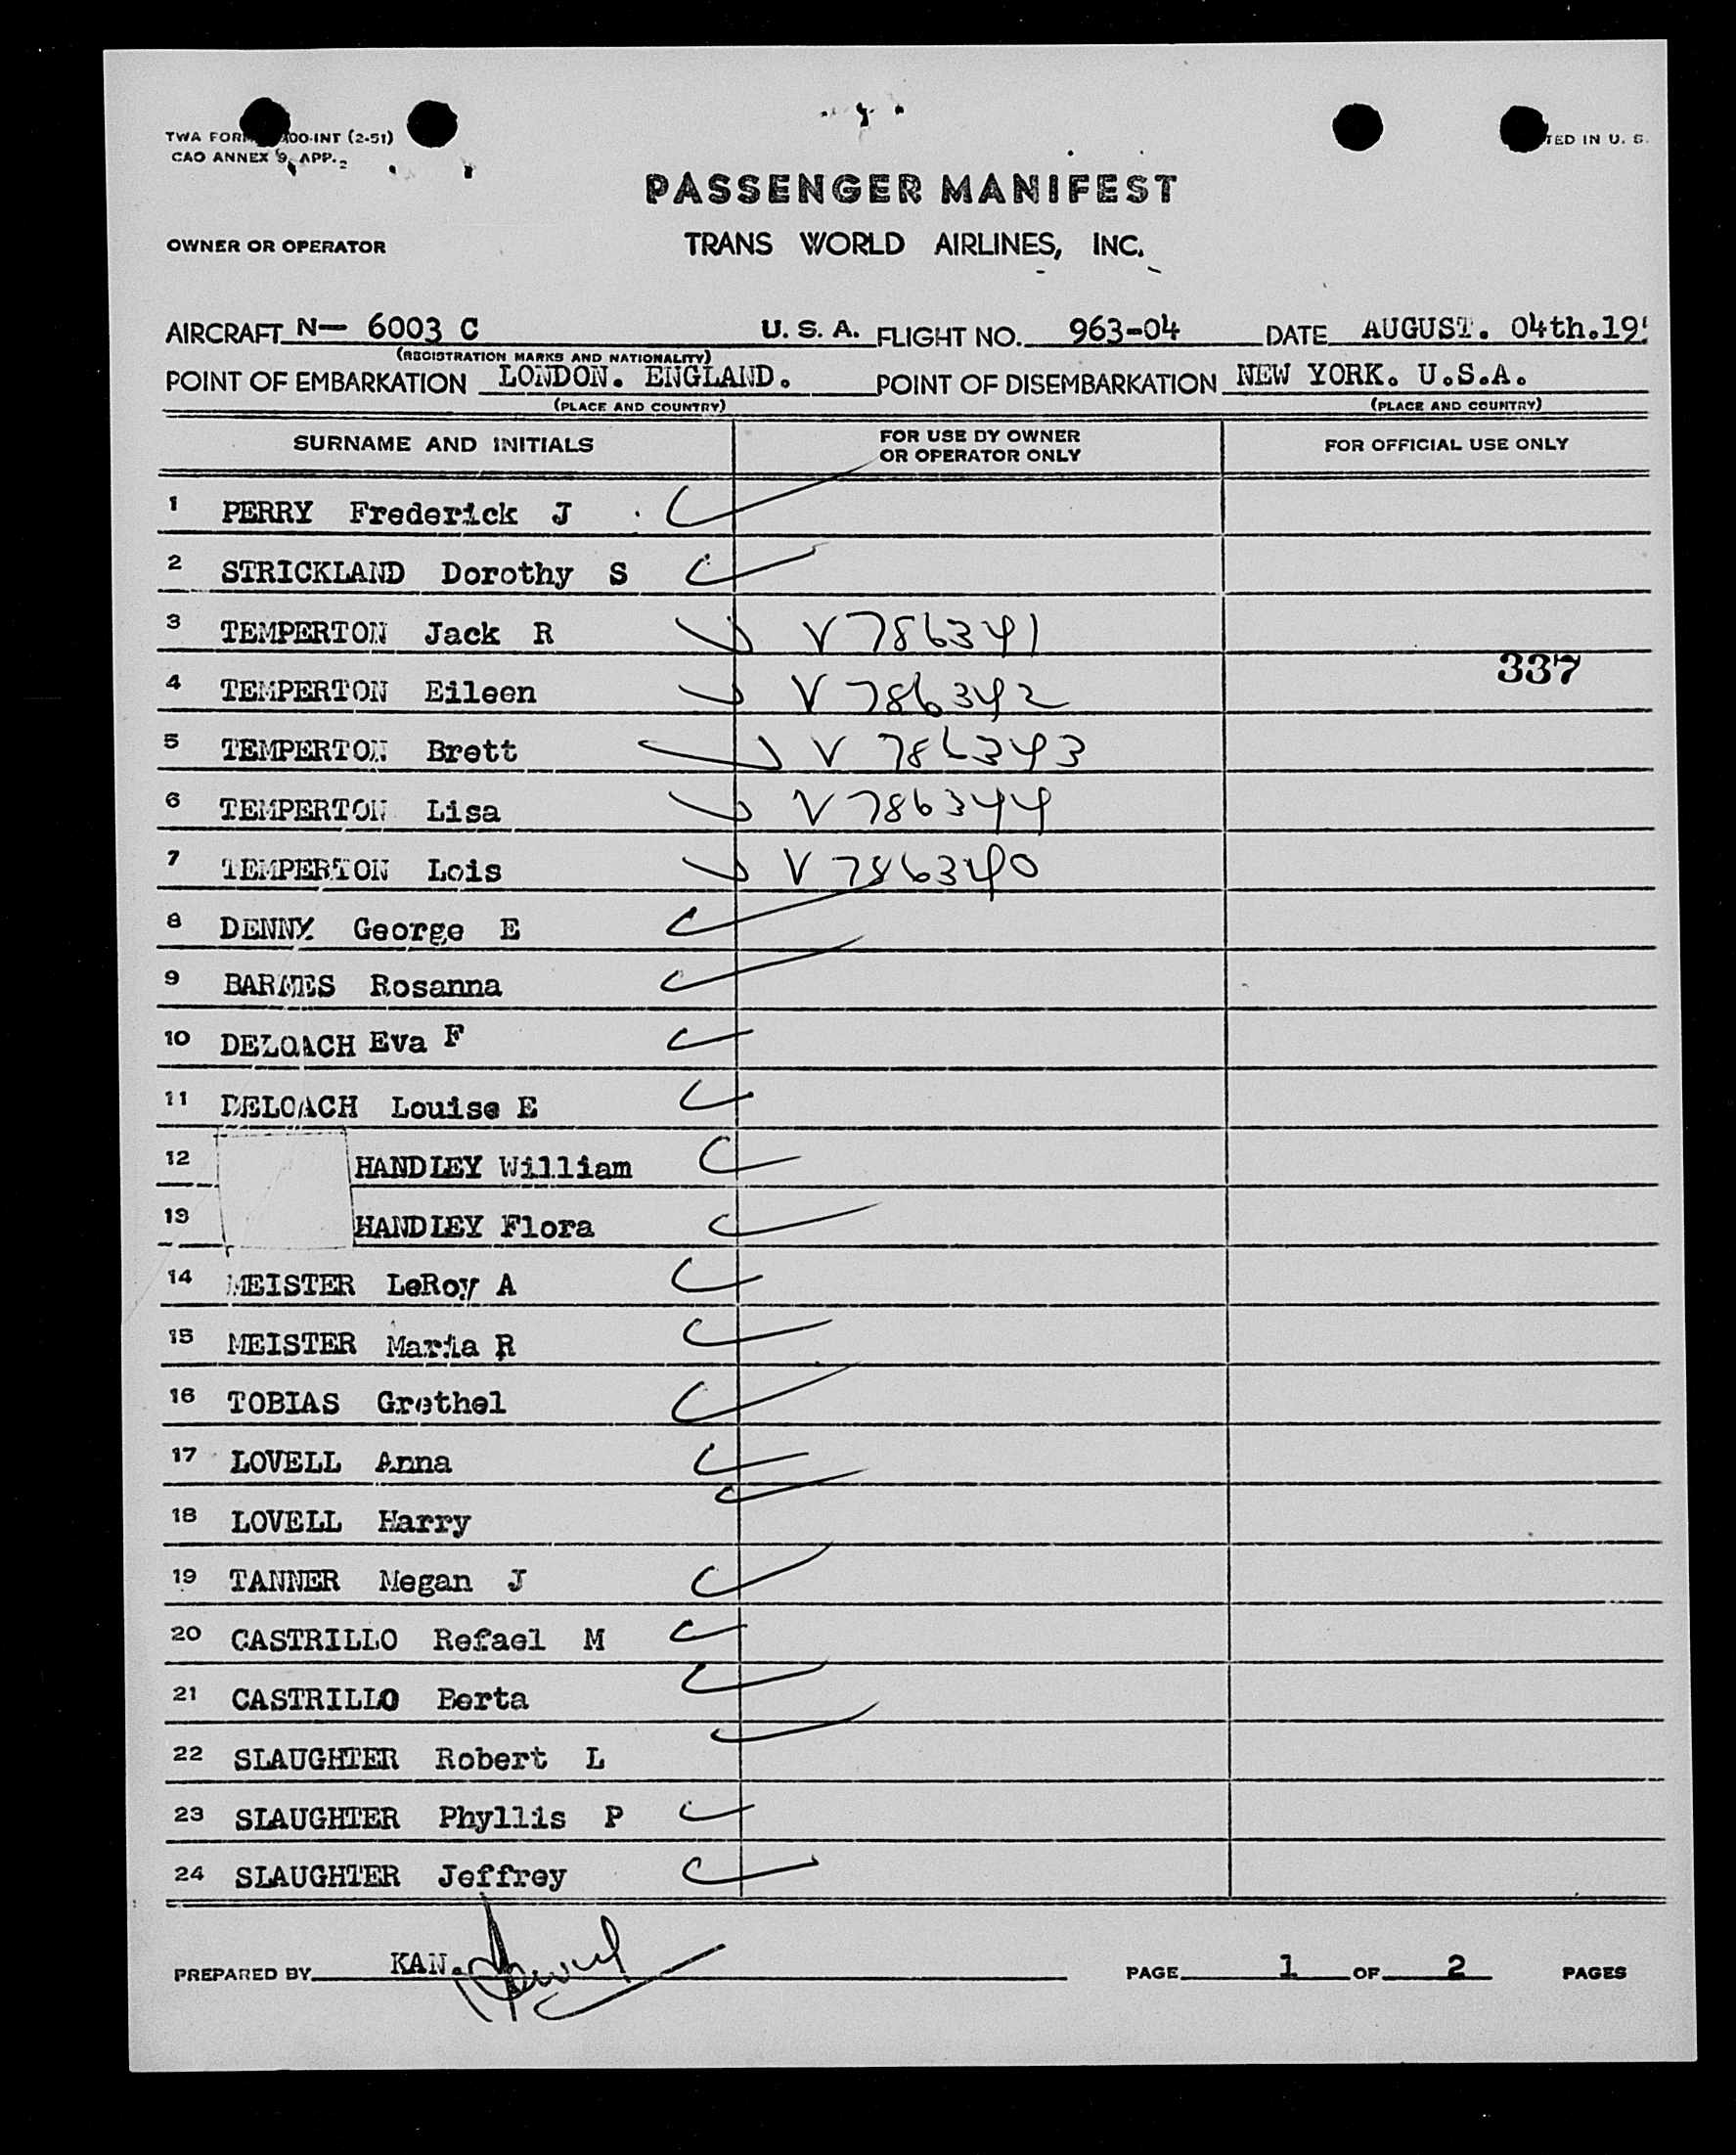 TWA FORM 00-INT (2-51)
CAO ANNEX 9, APP. 2
TED IN U. S.
PASSENGER MANIFEST
OWNER OR OPERATOR
TRANS WORLD AIRLINES, INC.
AIRCRAFT N— 6003 C U. S. A. FLIGHT NO. 963-04 DATE AUGUST. 04th.19
(REGISTRATION MARKS AND NATIONALITY)
POINT OF EMBARKATION LONDON. ENGLAND. POINT OF DISEMBARKATION NEW YORK. U.S.A.
(PLACE AND COUNTRY) (PLACE AND COUNTRY)
SURNAME AND INITIALS FOR USE BY OWNER OR OPERATOR ONLY FOR OFFICIAL USE ONLY
1 PERRY Frederick J
2 STRICKLAND Dorothy S
3 TEMPERTON Jack R V 786341
337
4 TEMPERTON Eileen V 786342
5 TEMPERTON Brett V 786343
6 TEMPERTON Lisa V 786344
7 TEMPERTON Lois V 786340
8 DENNY George E
9 BARNES Rosanna
10 DELOACH Eva F
11 DELOACH Louise E
12 HANDLEY William
13 HANDLEY Flora
14 MEISTER LeRoy A
15 MEISTER Maria R
16 TOBIAS Grethel
17 LOVELL Anna
18 LOVELL Harry
19 TANNER Megan J
20 CASTRILLO Refael M
21 CASTRILLO Berta
22 SLAUGHTER Robert L
23 SLAUGHTER Phyllis P
24 SLAUGHTER Jeffrey
PREPARED BY KAN. PAGE 1 OF 2 PAGES